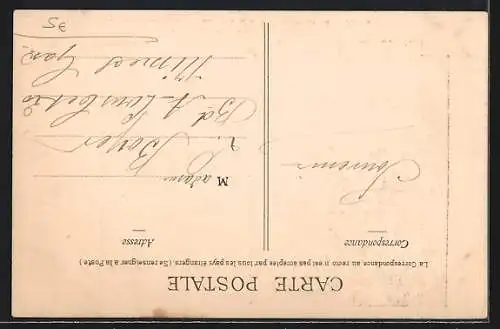 CARTE POSTALE
La Correspondance au recto n'est pas acceptée par tous les pays étrangers. (Se renseigner à la Poste.)
Correspondance
Adresse
Souvenir
Madame
Boyer
Bd
Nîmes Gard
35